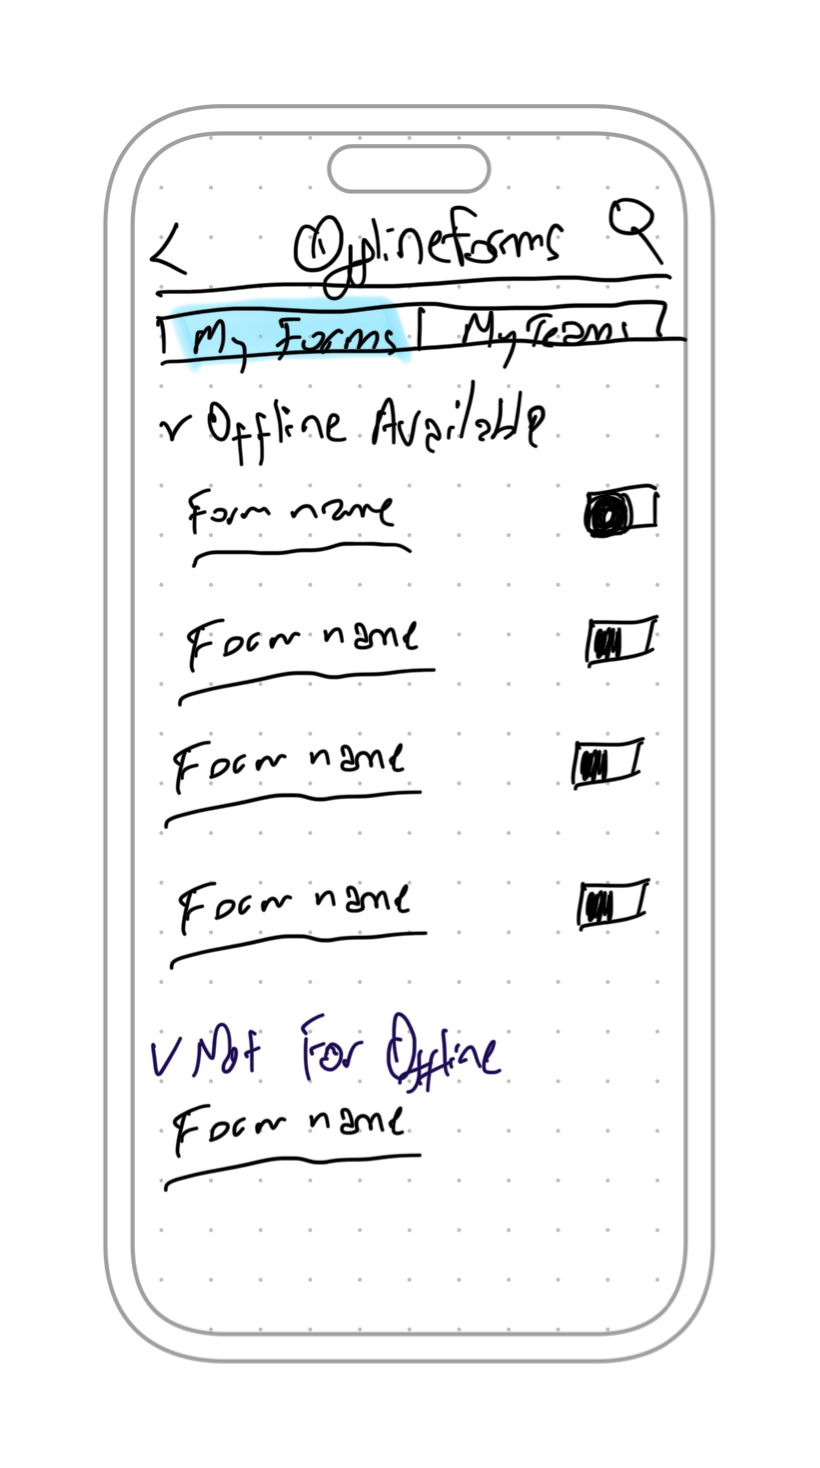 < Offline Forms
My Forms My Teams
Offline Available
Form name
Form name
Form name
Form name
Not For Offline
Form name